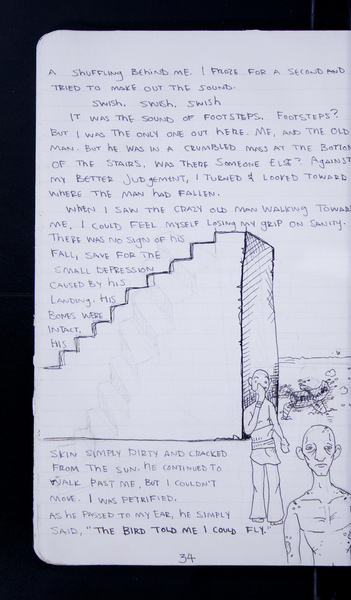 A SHUFFLING BEHIND ME. I FROZE FOR A SECOND AND
TRIED TO MAKE OUT THE SOUND.
SWISH. SWISH. SWISH
IT WAS THE SOUND OF FOOTSTEPS. FOOTSTEPS?
BUT I WAS THE ONLY ONE OUT HERE. ME, AND THE OLD
MAN. BUT HE WAS IN A CRUMBLED MASS AT THE BOTTOM
OF THE STAIRS. WAS THERE SOMEONE ELSE? AGAINST
MY BETTER JUDGEMENT, I TURNED & LOOKED TOWARD
WHERE THE MAN HAD FALLEN.
WHEN I SAW THE CRAZY OLD MAN WALKING TOWARD
ME, I COULD FEEL MYSELF LOSING MY GRIP ON SANITY.
THERE WAS NO SIGN OF HIS
FALL, SAVE FOR THE
SMALL DEPRESSION
CAUSED BY HIS
LANDING. HIS
BONES WERE
INTACT,
HIS
SKIN SIMPLY DIRTY AND CRACKED
FROM THE SUN. HE CONTINUED TO
WALK PAST ME, BUT I COULDN'T
MOVE. I WAS PETRIFIED.
AS HE PASSED TO MY EAR, HE SIMPLY
SAID, "THE BIRD TOLD ME I COULD FLY."
34